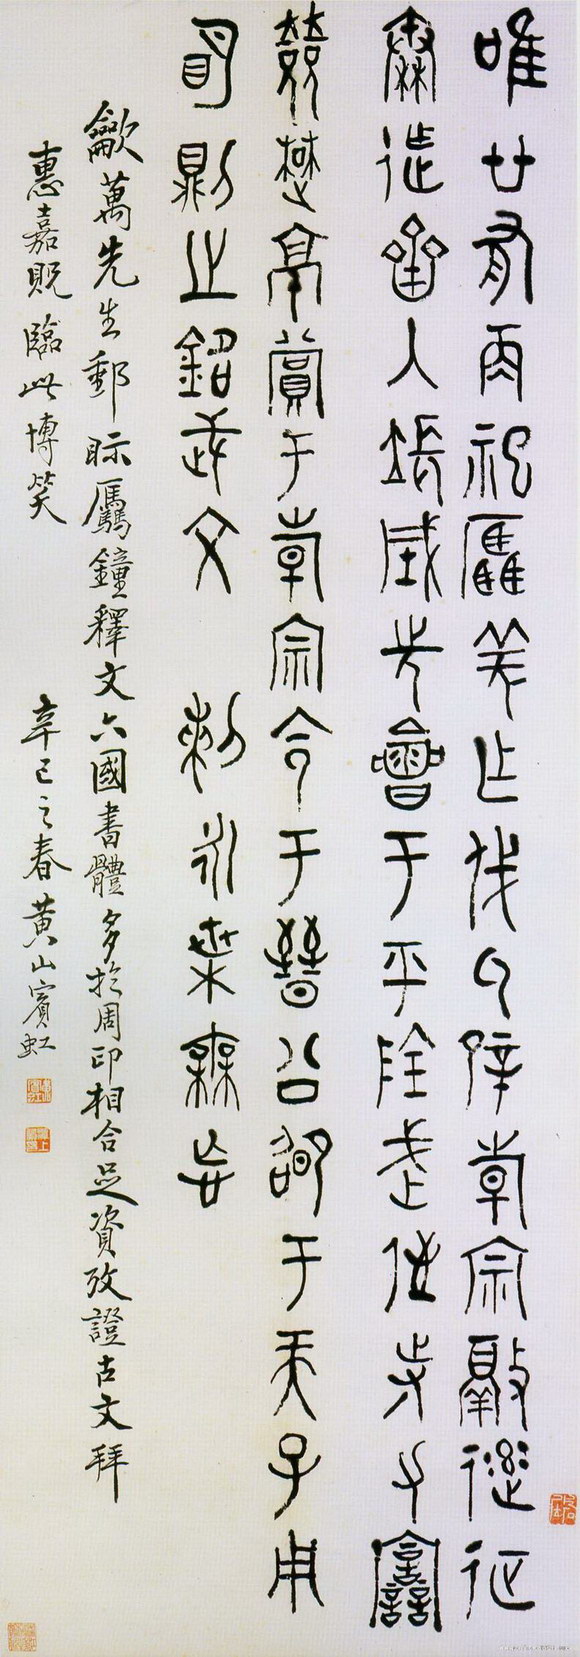 唯廿又再祀驫羌乍戎氒辟倝宗敲征
秦迮齊入長城先會于平陰武侄寺力譶
敓楚京賞于倝宗令于晉公卲于天子用
明則之銘武文 剌永枼無忘
萬先生郵眎驫鐘釋文六國書體多於周印相合足資攷證古文拜
惠嘉貺臨此博笑 辛巳之春黄山賓虹